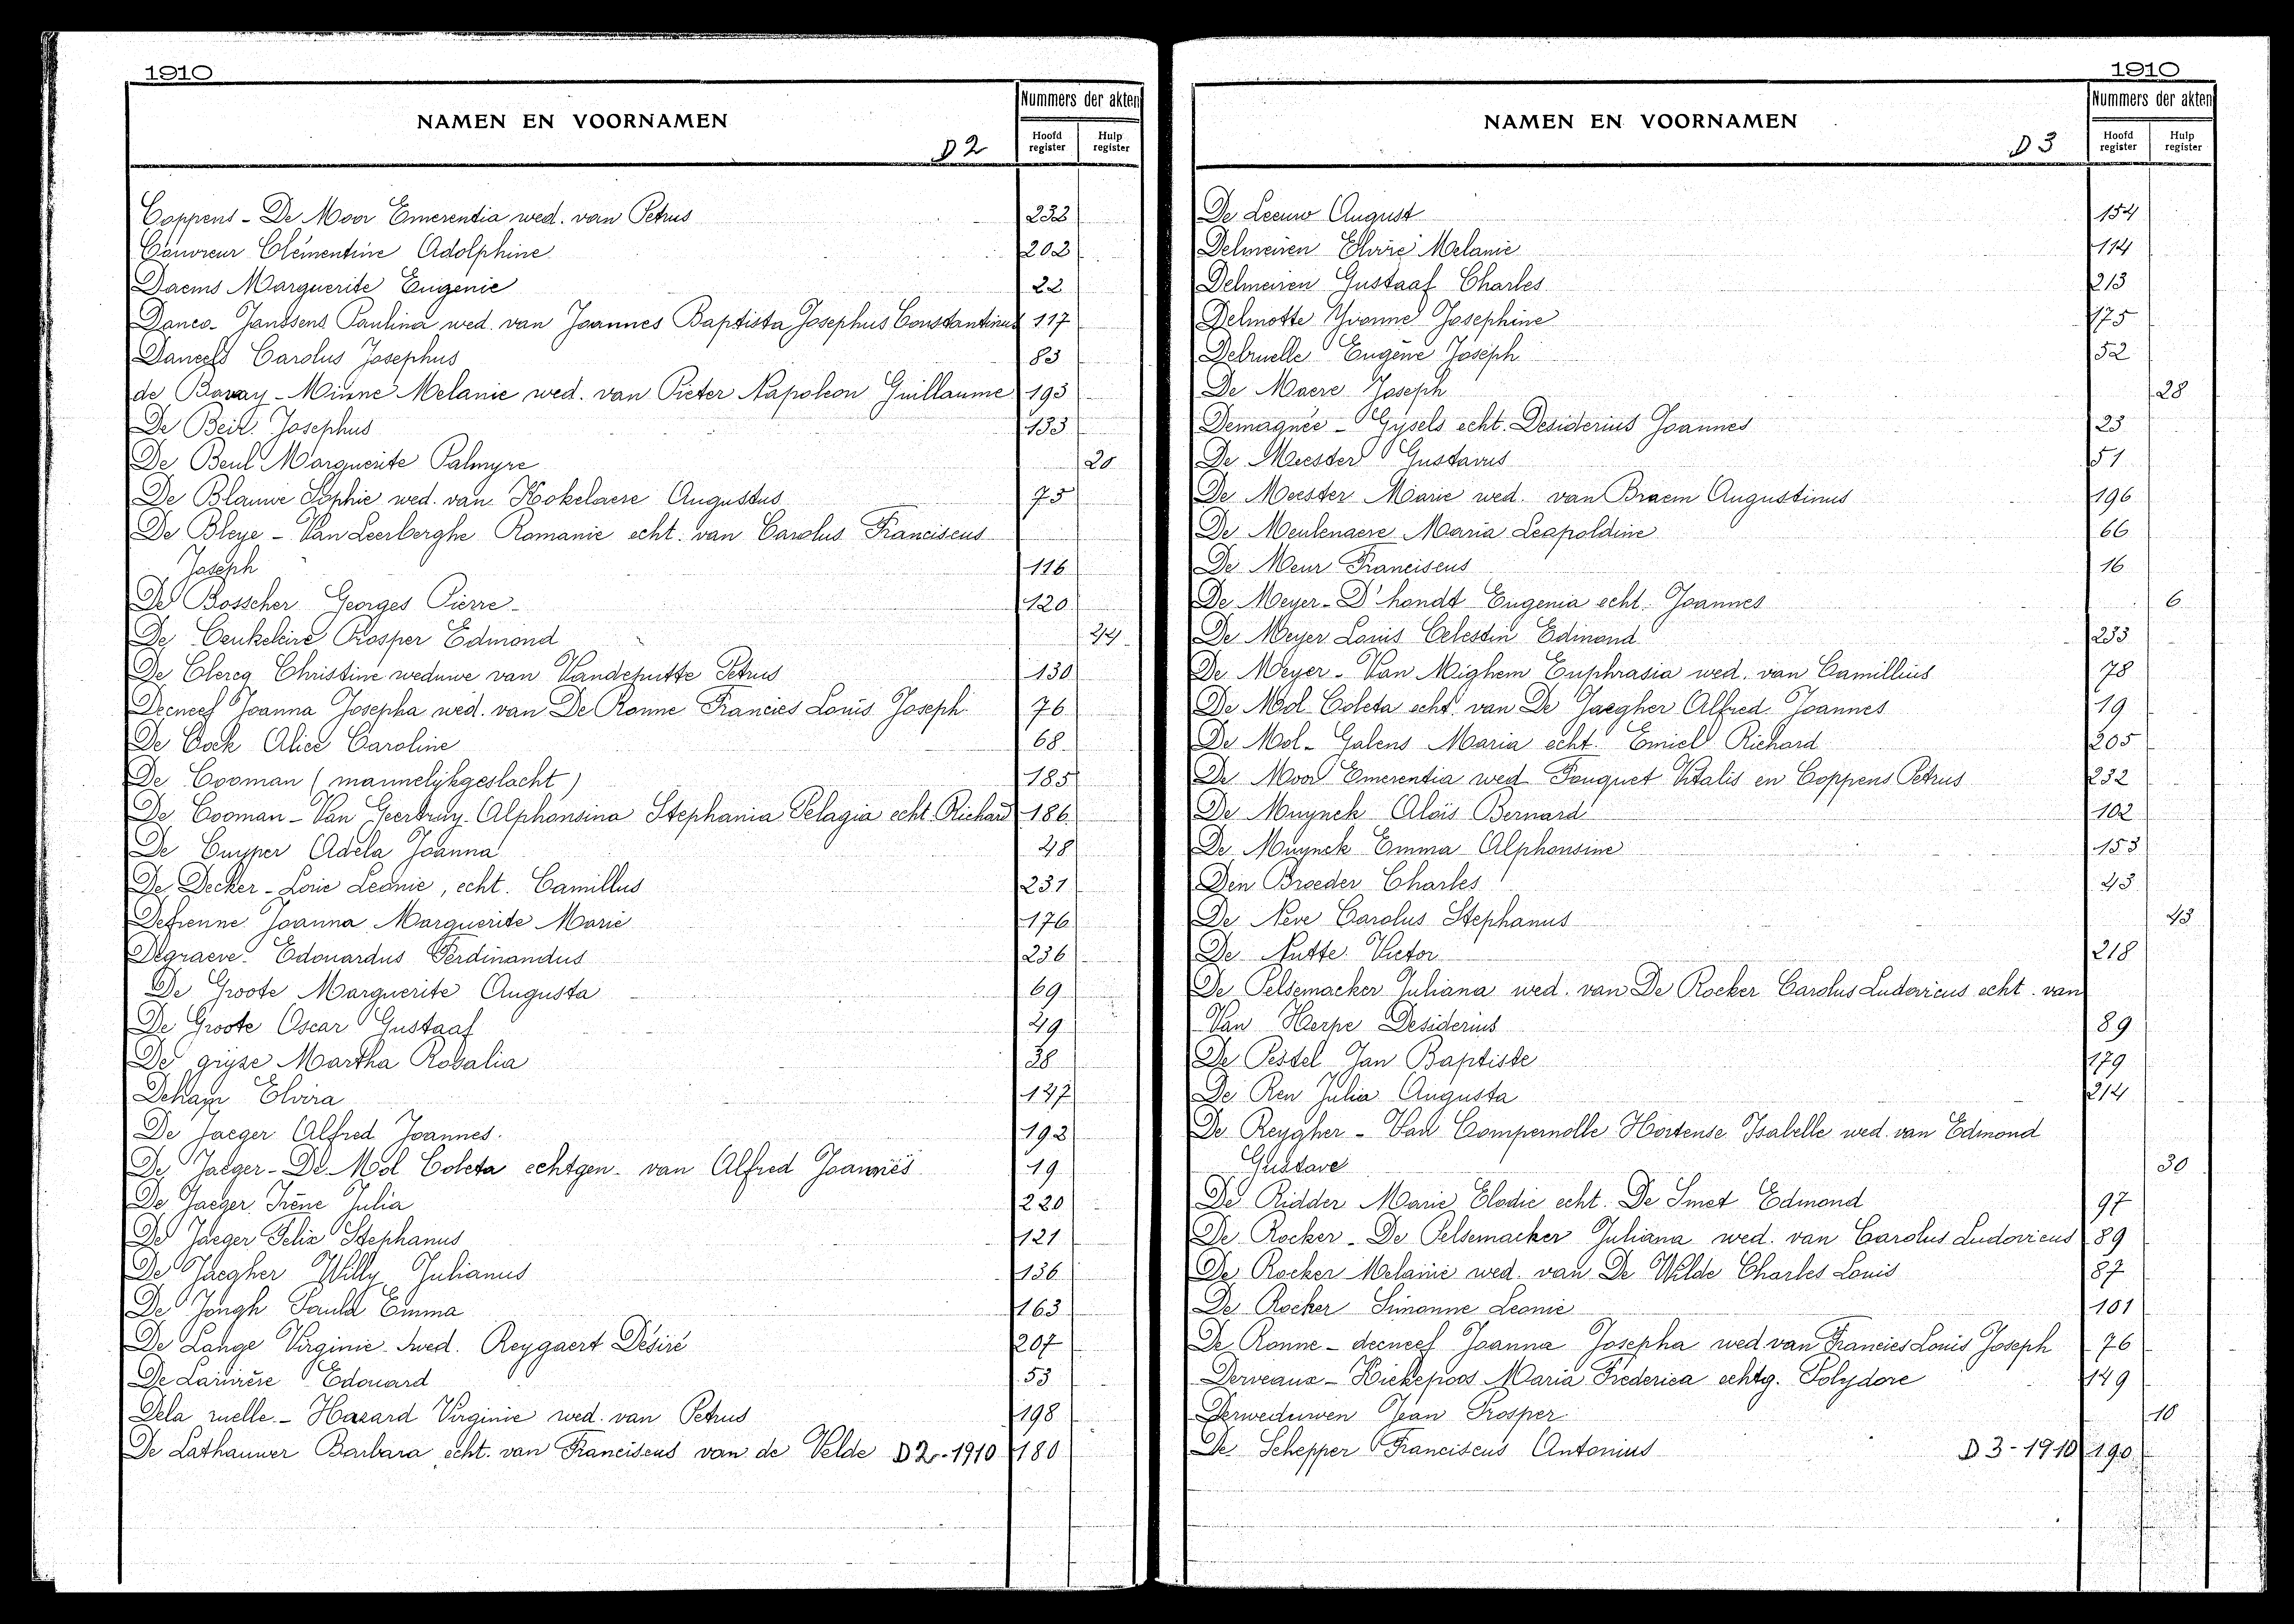 1910
NAMEN EN VOORNAMEN
D 2
Nummers der akten
Hoofd register
Hulp register
Coppens - De Moor Emerentia wed. van Petrus 232
Couvreur Clémentine Adolphine 202
Daems Marguerite Eugenie 22
Danco - Janssens Paulina wed. van Joannes Baptista Josephus Constantinus 117
Daneels Carolus Josephus 83
de Bavay - Minne Melanie wed. van Pieter Napoleon Guillaume 193
De Beir Josephus 133
De Beul Marguerite Palmyre 20
De Blauwe Sophie wed. van Kokelaere Augustus 75
De Bleye - Van Leerberghe Romanie echt. van Carolus Franciscus
Joseph 116
De Bosscher Georges Pierre 120
De Ceukeleire Prosper Edmond 24
De Clercq Christine weduwe van Vandeputte Petrus 130
Decneef Joanna Josepha wed. van De Ronne Francies Louis Joseph 76
De Cock Alice Caroline 68
De Cooman (mannelijkgeslacht) 185
De Cooman - Van Geertruy Alphonsina Stephania Pelagia echt. Richard 186
De Cuyper Adela Joanna 48
De Decker - Lorie Leonie, echt. Camillus 231
Defrenne Joanna Marguerite Marie 176
Degraeve Edouardus Ferdinandus 236
De Groote Marguerite Augusta 69
De Groote Oscar Gustaaf 49
De gryse Martha Rosalia 38
Dehaye Elvira 147
De Jaeger Alfred Joannes. 192
De Jaeger - De Mol Coleta echtgen. van Alfred Joannes 19
De Jaeger Irène Julia 220
De Jaeger Felix Stephanus 121
De Jaegher Willy Julianus 136
De Jongh Paula Emma 163
De Lange Virginie wed. Reygaert Désiré 207
De Larivière Edouard 53
Dela ruelle - Hazard Virginie wed. van Petrus 198
De Lathauwer Barbara echt. van Franciscus van de Velde D2-1910 180
1910
NAMEN EN VOORNAMEN
D 3
Nummers der akten
Hoofd register
Hulp register
De Leeuw August 154
Delmeiren Elvire Melanie 114
Delmeiren Gustaaf Charles 213
Delmotte Yvonne Josephine 175
Delruelle Eugène Joseph 52
De Maere Joseph 28
Demagnée - Gijsels echt. Desiderius Joannes 23
De Meester Gustavus 51
De Meester Marie wed. van Braem Augustinus 196
De Meulenaere Maria Leopoldine 66
De Meur Franciscus 16
De Meyer - D'hondt Eugenia echt. Joannes 6
De Meyer Louis Celestin Edmond 233
De Meyer - Van Mighem Euphrasia wed. van Camillius 78
De Mol Coleta echt. van De Jaegher Alfred Joannes 19
De Mol - Galens Maria echt. Emiel Richard 205
De Moor Emerentia wed. Fouquet Vitalis en Coppens Petrus 232
De Muynck Alois Bernard 102
De Muynck Emma Alphonsine 153
Den Broeder Charles 43
De Neve Carolus Stephanus 43
De Nutte Victor 218
De Pelsemacker Juliana wed. van De Rocker Carolus Ludovicus echt. van
Van Herpe Desiderius 89
De Pestel Jan Baptiste 179
De Reu Julia Augusta 214
De Reygher - Van Compernolle Hortense Isabelle wed. van Edmond
Gustave 30
De Ridder Marie Elodie echt. De Smet Edmond 97
De Rocker - De Pelsemacker Juliana wed. van Carolus Ludovicus 89
De Rocker Melanie wed. van De Wilde Charles Louis 87
De Rocker Simonne Leonie 101
De Ronne - decneef Joanna Josepha wed. van Francies Louis Joseph 76
Derveaux - Hiekepoos Maria Frederica echtg. Polydore 149
Derweduwen Jean Prosper 10
De Schepper Franciscus Antonius D3-1910 190